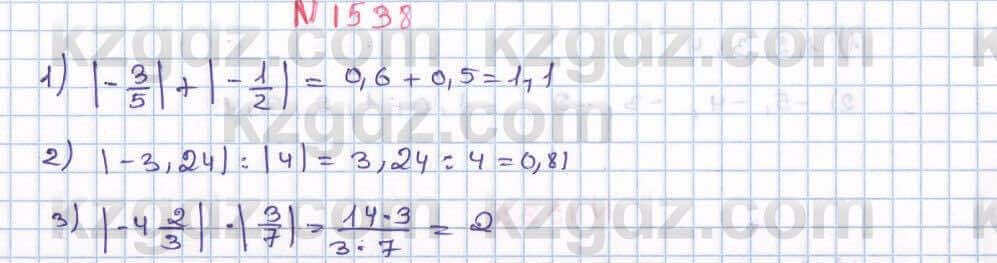 № 1538
kzgdz.com kzgdz.com
1) |-3/5| + |-1/2| = 0,6 + 0,5 = 1,1
kzgdz.com kzgdz.com
2) |-3,24| : |4| = 3,24 : 4 = 0,81
3) |-4 2/3| · |3/7| = 14·3/3:7 = 2
kzgdz.com kzgdz.com